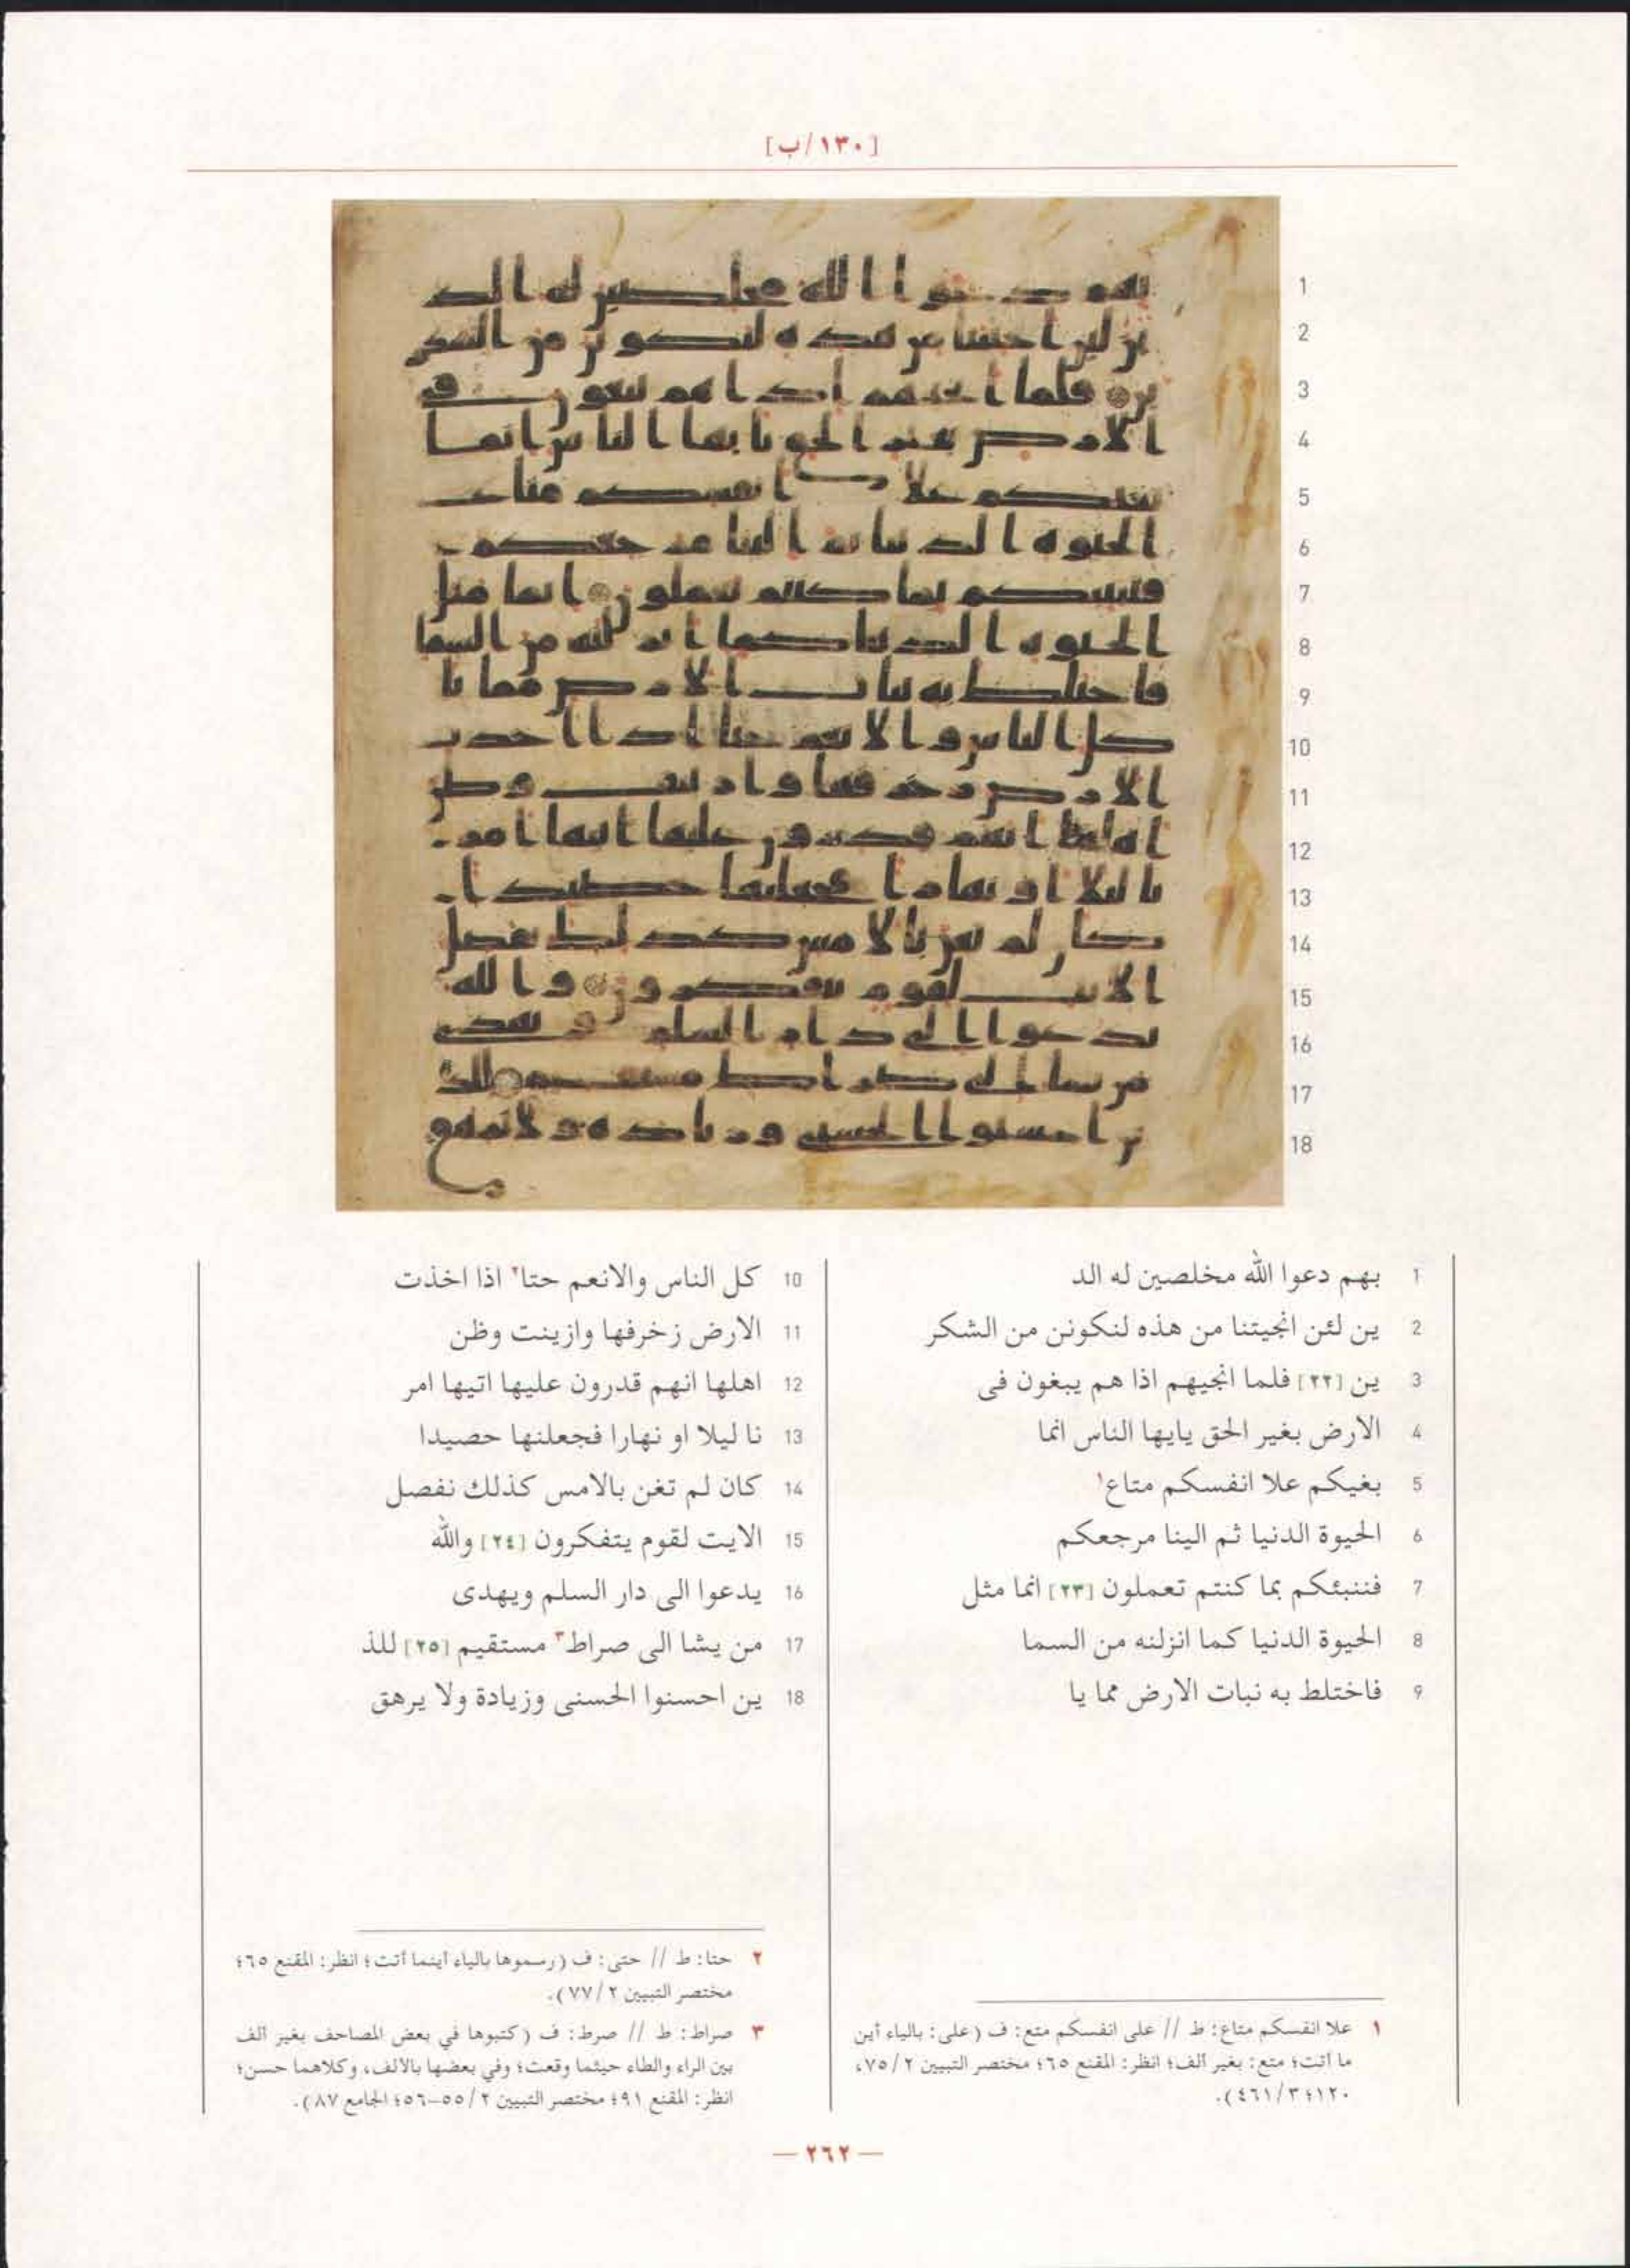 [١٣٠/ب]
1 بهم دعوا الله مخلصين له الد
2 ين لئن انجيتنا من هذه لنكونن من الشكر
3 ين [٢٢] فلما انجيهم اذا هم يبغون فى
4 الارض بغير الحق يايها الناس انما
5 بغيكم علا انفسكم متاع١
6 الحيوة الدنيا ثم الينا مرجعكم
7 فننبئكم بما كنتم تعملون [٢٣] انما مثل
8 الحيوة الدنيا كما انزلنه من السما
9 فاختلط به نبات الارض مما يا
10 كل الناس والانعم حتا٢ اذا اخذت
11 الارض زخرفها وازينت وظن
12 اهلها انهم قدرون عليها اتيها امر
13 نا ليلا او نهارا فجعلنها حصيدا
14 كان لم تغن بالامس كذلك نفصل
15 الايت لقوم يتفكرون [٢٤] والله
16 يدعوا الى دار السلم ويهدى
17 من يشا الى صراط٣ مستقيم [٢٥] للذ
18 ين احسنوا الحسنى وزيادة ولا يرهق
١ علا انفسكم متاع: ط // على انفسكم متع: ف (على: بالياء أين
ما أتت؛ متع: بغير ألف؛ انظر: المقنع ٦٥؛ مختصر التبيين ٧٥/٢،
١٢٠؛ ٤٦١/٣).
٢ حتا: ط // حتى: ف (رسموها بالياء أينما أتت؛ انظر: المقنع ٦٥؛
مختصر التبيين ٧٧/٢).
٣ صراط: ط // صرط: ف (كتبوها في بعض المصاحف بغير ألف
بين الراء والطاء حيثما وقعت؛ وفي بعضها بالألف، وكلاهما حسن؛
انظر: المقنع ٩١؛ مختصر التبيين ٥٥/٢–٥٦؛ الجامع ٨٧).
— ٢٦٢ —